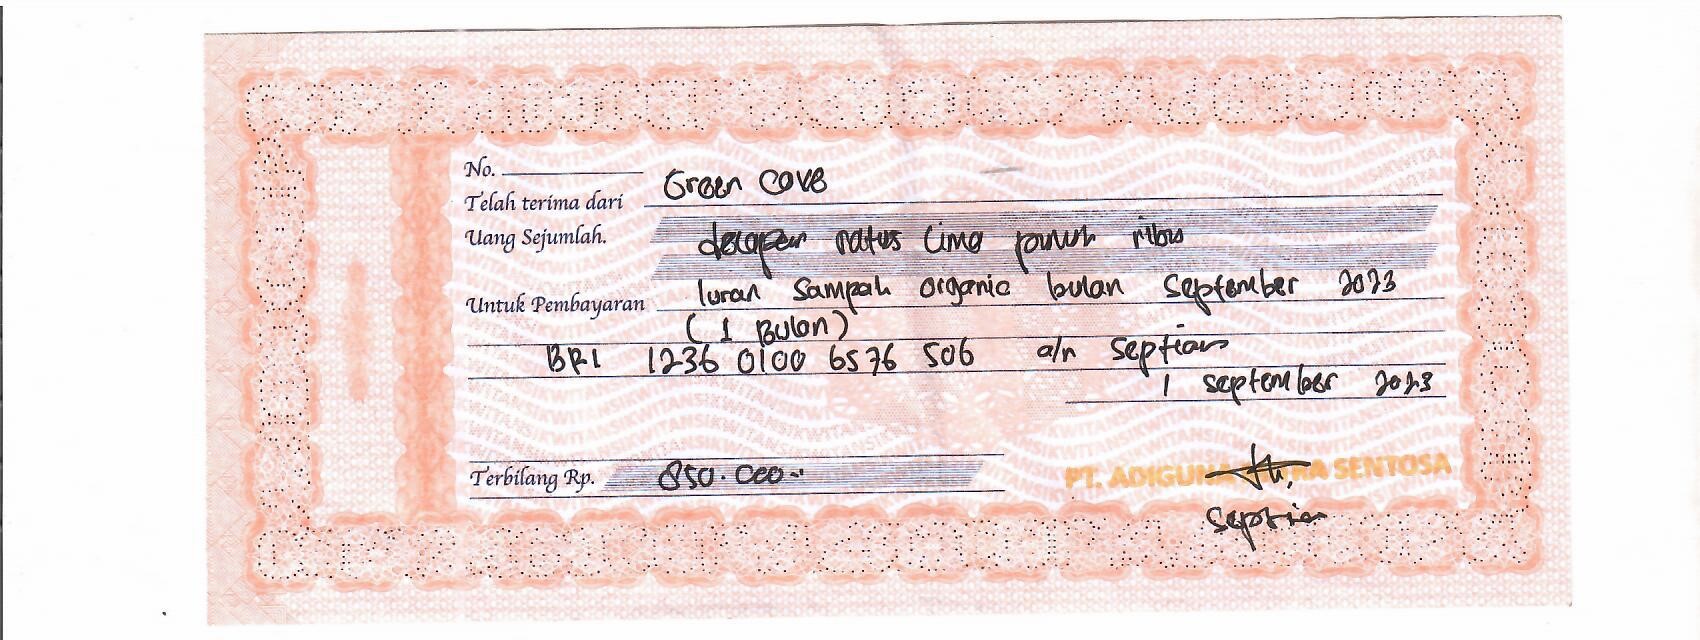 No.
Telah terima dari Green Cove
Uang Sejumlah. delapan ratus lima puluh ribu
Untuk Pembayaran Iuran Sampah organic bulan September 2023
( 1 Bulan )
BRI 1236 0100 6576 506 a/n Septian
1 September 2023
Terbilang Rp. 850.000.-
PT. ADIGUNA SENTOSA
Septian